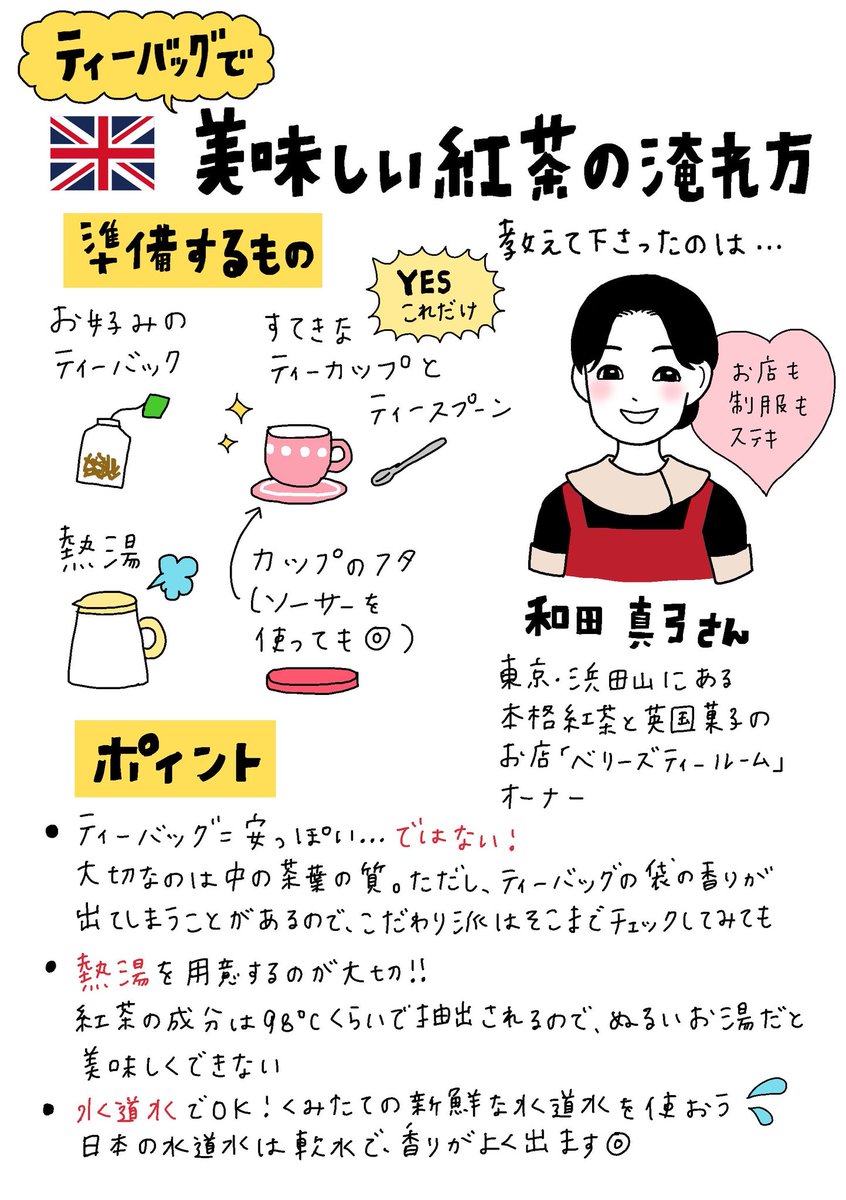 ティーバッグで
美味しい紅茶の淹れ方
準備するもの
お好みの
ティーバック
すてきな
ティーカップと
ティースプーン
YES
これだけ
熱湯
カップのフタ
(ソーサーを
使っても◎)
教えて下さったのは…
お店も
制服も
ステキ
和田 真弓さん
東京・浜田山にある
本格紅茶と英国菓子の
お店「ベリーズティールーム」
オーナー
ポイント
• ティーバッグ=安っぽい…ではない!
大切なのは中の茶葉の質。ただし、ティーバッグの袋の香りが
出てしまうことがあるので、こだわり派はそこまでチェックしてみても
• 熱湯を用意するのが大切!!
紅茶の成分は98℃くらいで抽出されるので、ぬるいお湯だと
美味しくできない
• 水道水でOK!くみたての新鮮な水道水を使おう
日本の水道水は軟水で、香りがよく出ます◎